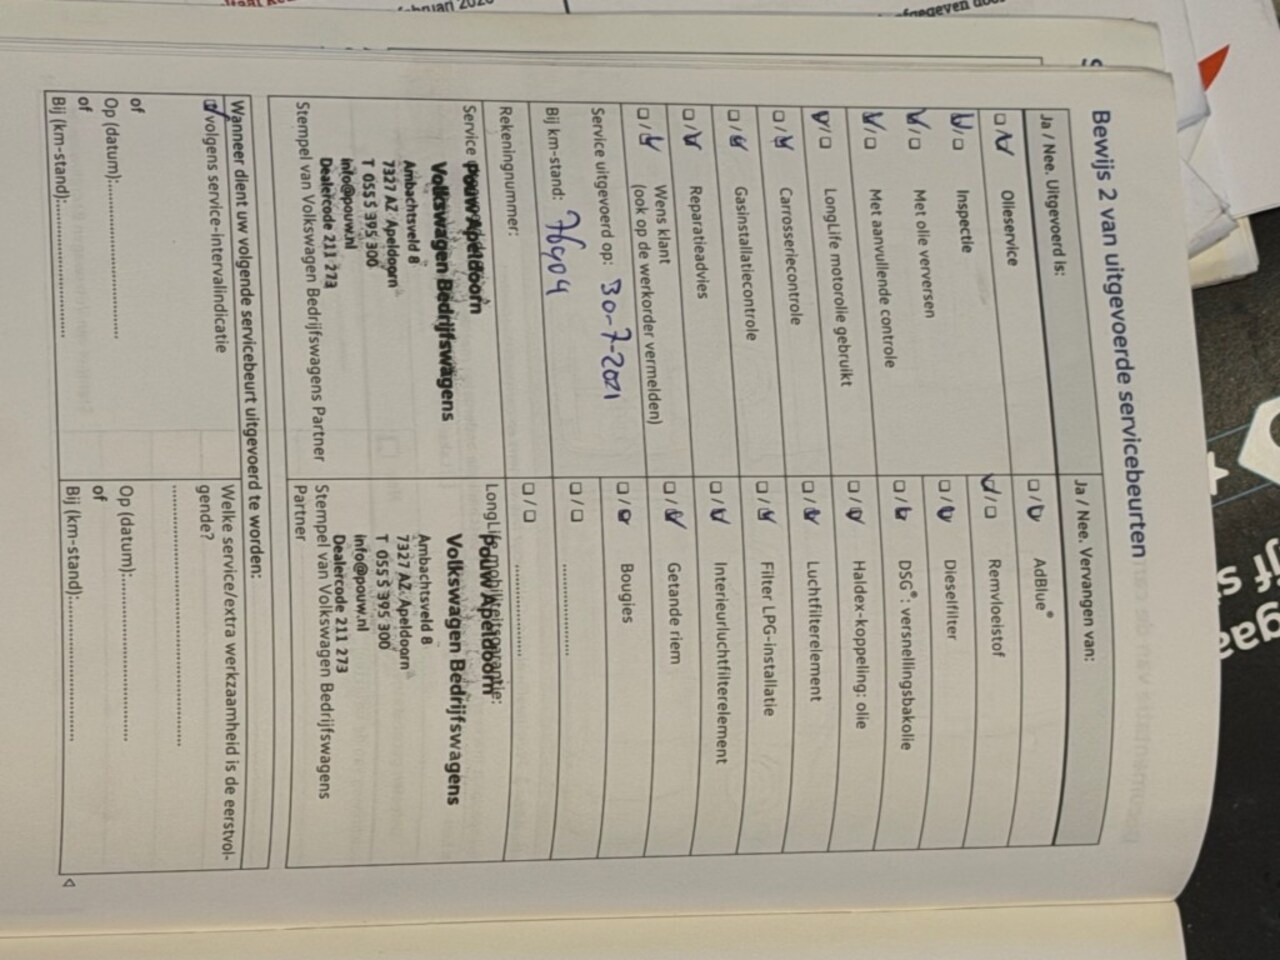 Bewijs 2 van uitgevoerde servicebeurten
Ja / Nee. Uitgevoerd is:
□ / □ Olieservice
□ / □ Inspectie
□ / □ Met olie verversen
□ / □ Met aanvullende controle
□ / □ LongLife motorolie gebruikt
□ / □ Carrosseriecontrole
□ / □ Gasinstallatiecontrole
□ / □ Reparatieadvies
□ / □ Wens klant
(ook op de werkorder vermelden)
Service uitgevoerd op: 30-7-2021
Bij km-stand: 76904
Rekeningnummer:
Service
Pouw Apeldoorn
Volkswagen Bedrijfswagens
Ambachtsveld 8
7327 AZ Apeldoorn
T 055 5 395 300
info@pouw.nl
Dealercode 211 273
Stempel van Volkswagen Bedrijfswagens Partner
Ja / Nee. Vervangen van:
□ / □ AdBlue®
□ / □ Remvloeistof
□ / □ Dieselfilter
□ / □ DSG®: versnellingsbakolie
□ / □ Haldex-koppeling: olie
□ / □ Luchtfilterelement
□ / □ Filter LPG-installatie
□ / □ Interieurluchtfilterelement
□ / □ Getande riem
□ / □ Bougies
□ / □ ....................
□ / □ ....................
LongLife mobiliteitsgarantie:
Pouw Apeldoorn
Volkswagen Bedrijfswagens
Ambachtsveld 8
7327 AZ Apeldoorn
T 055 5 395 300
info@pouw.nl
Dealercode 211 273
Stempel van Volkswagen Bedrijfswagens
Partner
Wanneer dient uw volgende servicebeurt uitgevoerd te worden:
□ volgens service-intervalindicatie
of
Op (datum):..............................
of
Bij (km-stand):..........................
Welke service/extra werkzaamheid is de eerstvol-
gende?
..................................................
Op (datum):..............................
of
Bij (km-stand):..........................